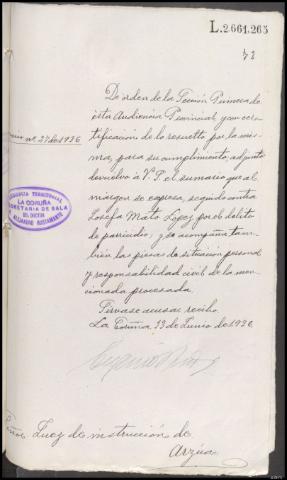 L.2.661.263
De orden de la Sección Primera de
esta Audiencia Provincial y con cer-
tificación de lo resuelto por la mis-
ma, para su cumplimiento, adjunto
nº 27 de 1936
devuelvo a V.S. el sumario que al
margen se expresa, seguido contra
Josefa Mato López por el delito
de parricidio, y se acompaña tam-
bién las piezas de situación personal
y responsabilidad civil de la men-
cionada procesada.
AUDIENCIA TERRITORIAL
LA CORUÑA
SECRETARIA DE SALA
DEL DOCTOR
ALEJANDRO BUSTAMANTE
Sírvase acusar recibo
La Coruña 13 de Junio de 1936
Juez de instrucción de
Arzúa